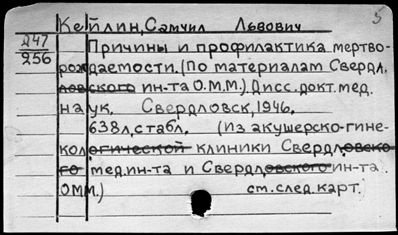 5
Кейлин, Самуил Львович
247 Причины и профилактика мертво-
256 рождаемости. (По материалам Свердл.
ловского ин-та О.М.М.) Дисс. докт. мед.
наук. Свердловск, 1946.
638л, с табл. (Из акушерско-гине-
кологической клиники Свердловско-
го мед. ин-та и Свердловского ин-та
ОММ.) см. след. карт.